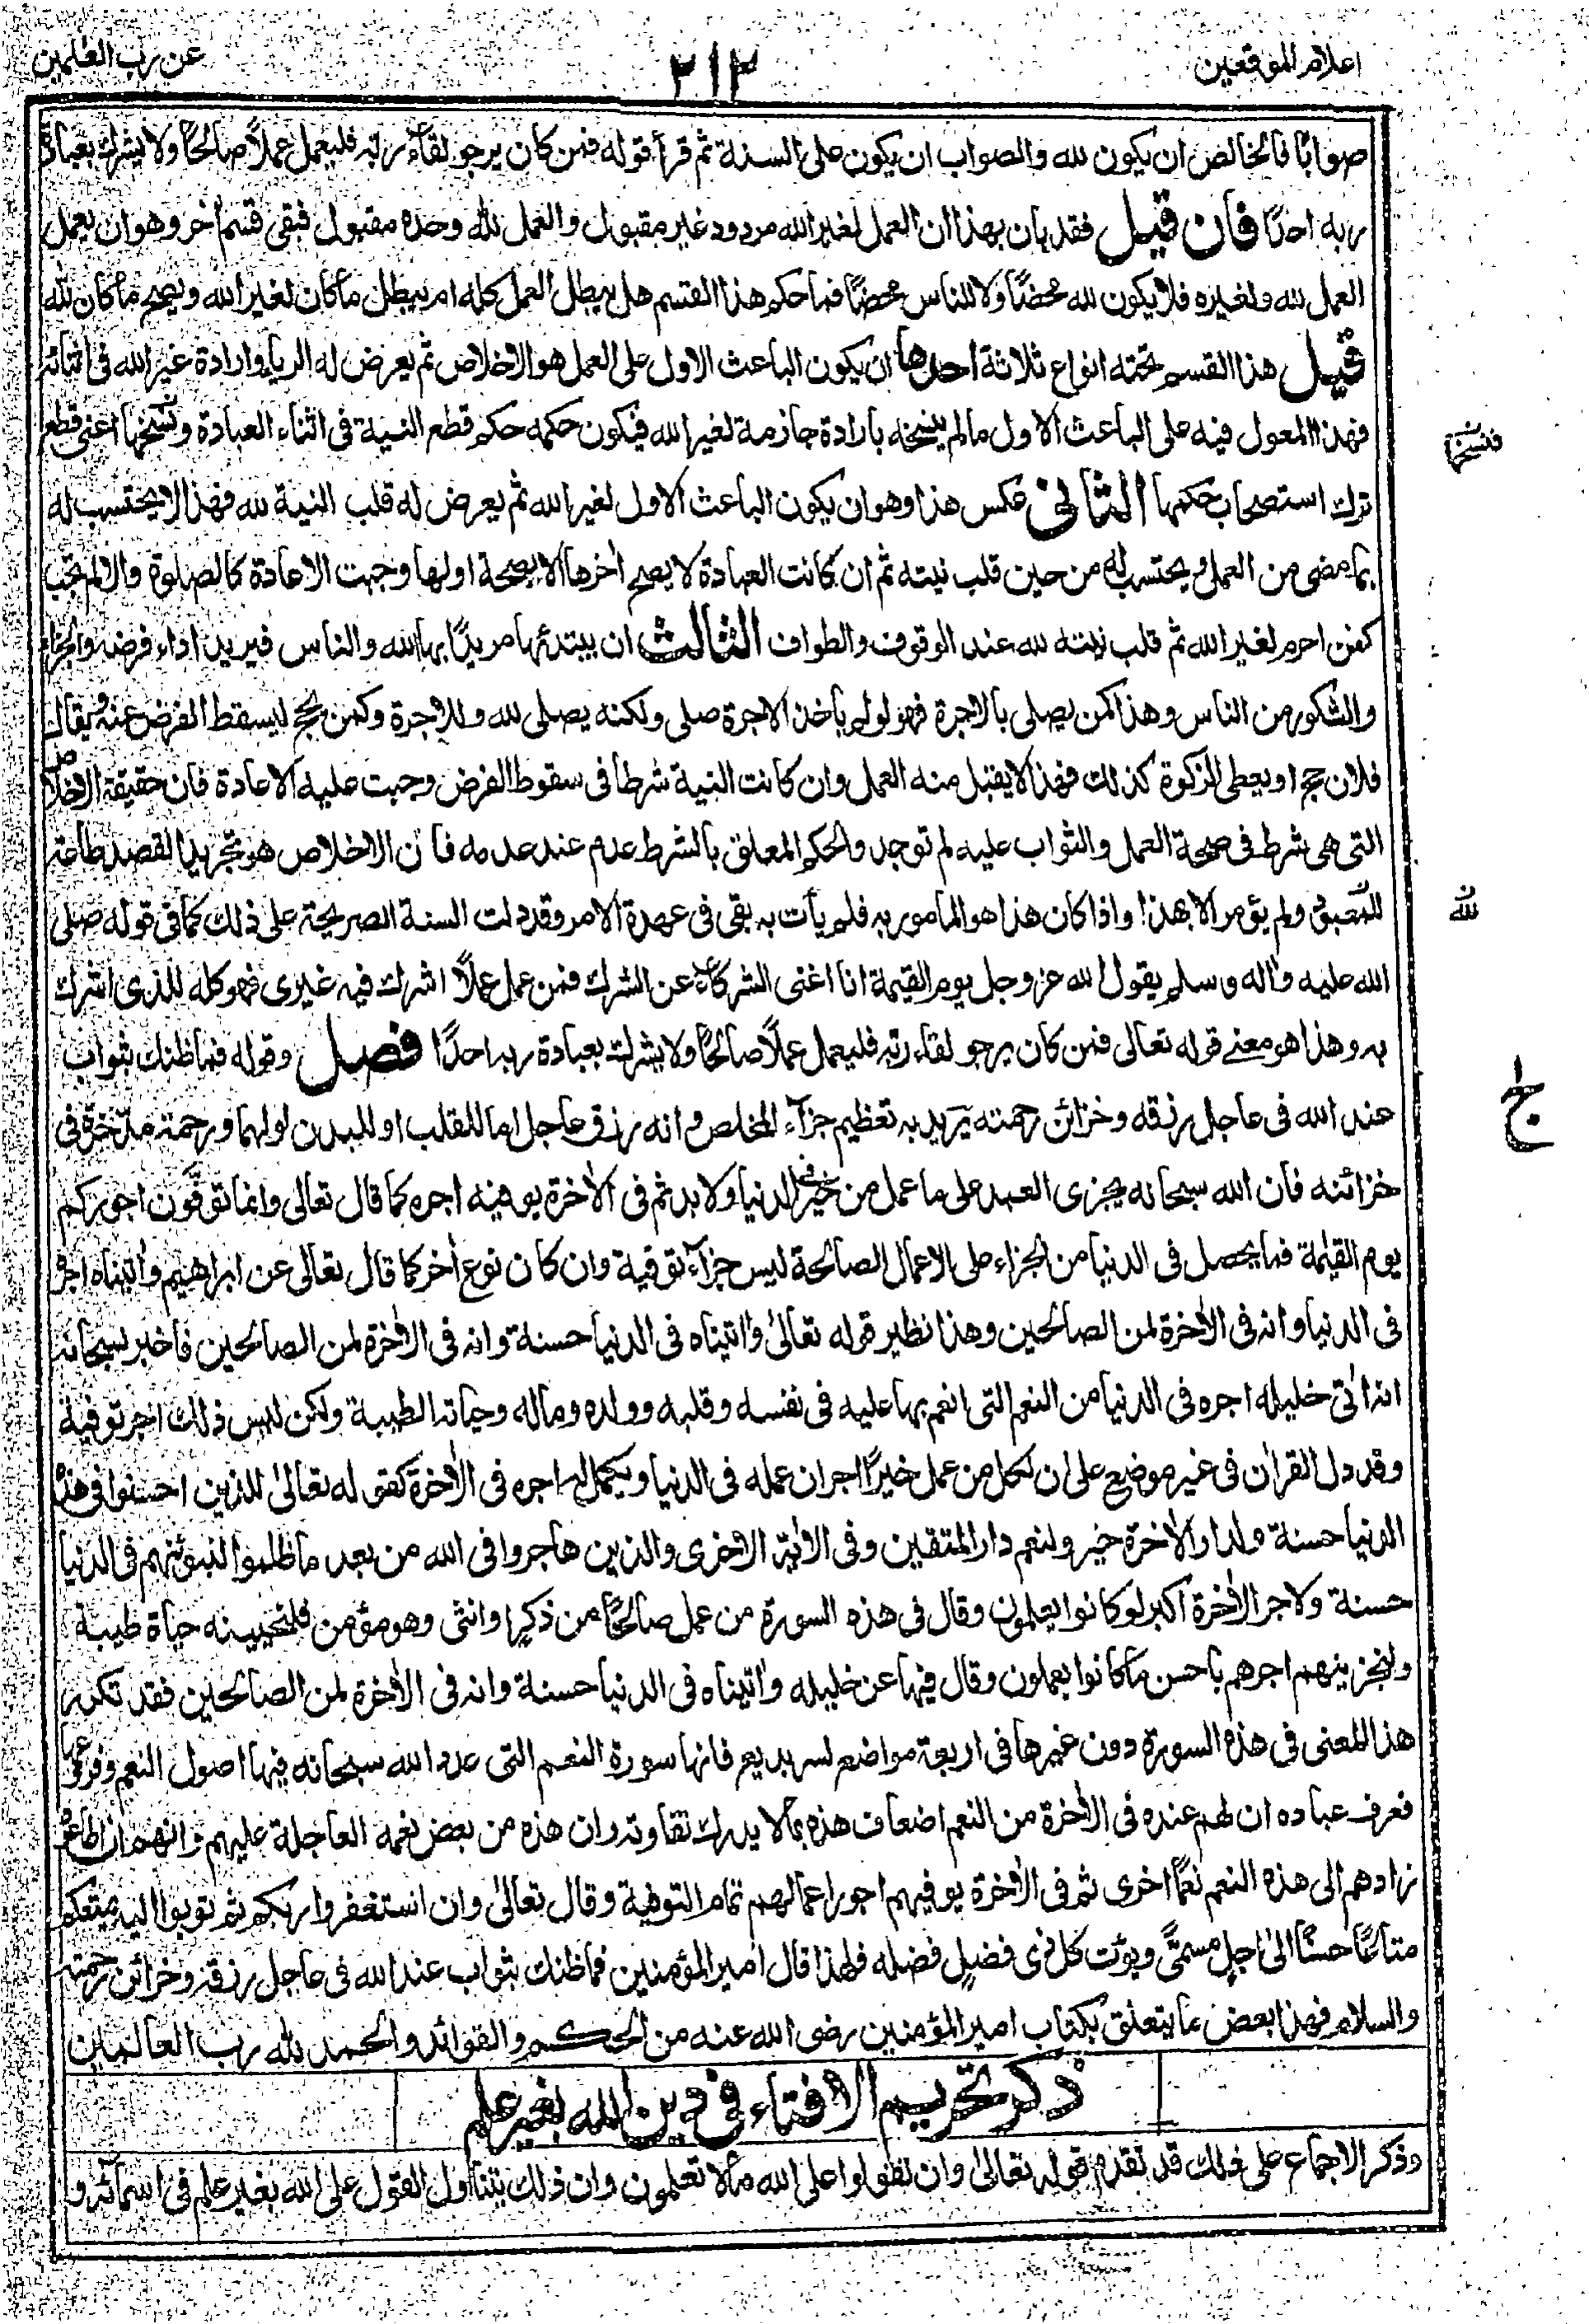 اعلام الموقعين
٢١٢
عن رب العلمين
صوابًا فالخالص ان يكون لله والصواب ان يكون على السنة ثم قرأ قوله فمن كان يرجو لقاء ربه فليعمل عملًا صالحًا ولا يشرك بعبادة
ربه احدًا فان قيل فقد بان بهذا ان العمل لغير الله مردود غير مقبول والعمل لله وحده مقبول فبقى قسم اٰخر وهو ان يعمل
العمل لله ولغيره فلا يكون لله محضًا ولا للناس محضًا فما حكم هذا القسم هل يبطل العمل كله ام يبطل ما كان لغير الله ويصح ما كان لله
قيل هذا القسم تحته انواع ثلاثة احدها ان يكون الباعث الاول على العمل هو الاخلاص ثم يعرض له الرياء وارادة غير الله فى اثنائه
فهذا المعول فيه على الباعث الاول ما لم يفسخه بارادة جازمة لغير الله فيكون حكمه حكم قطع النية فى اثناء العبادة وفسخها اعنى قطع
فسخها
ترك استصحاب حكمها الثانى عكس هذا وهو ان يكون الباعث الاول لغير الله ثم يعرض له قلب النية لله فهذا لا يحتسب له
بما مضى من العمل ويحتسب له من حين قلب نيته ثم ان كانت العبادة لا يصح اٰخرها الا بصحة اولها وجبت الاعادة كالصلوة والا لم تجب
كمن احرم لغير الله ثم قلب نيته لله عند الوقوف والطواف الثالث ان يبتدئها مريدًا بها الله والناس فيريد اداء فرضه والجزاء
والشكور من الناس وهذا كمن يصلى بالاجرة فهو لو لم ياخذ الاجرة صلى ولكنه يصلى لله وللاجرة وكمن يحج ليسقط الفرض عنه ويقال
فلان حج او يعطى الزكوة كذلك فهذا لا يقبل منه العمل وان كانت النية شرطا فى سقوط الفرض وجبت عليه الاعادة فان حقيقة الاخلاص
التى هى شرط فى صحة العمل والثواب عليه لم توجد والحكم المعلق بالشرط عدم عند عدمه فان الاخلاص هو تجريد القصد طاعة
للمعبود ولم يؤمر الا بهذا واذا كان هذا هو المامور به فلم يأت به بقى فى عهدة الامر وقد دلت السنة الصريحة على ذلك كما فى قوله صلى
لله
الله عليه واٰله وسلم يقول الله عز وجل يوم القيٰمة انا اغنى الشركاء عن الشرك فمن عمل عملًا اشرك فيه غيرى فهو كله للذى اشرك
به وهذا هو معنے قوله تعالى فمن كان يرجو لقاء ربه فليعمل عملًا صالحًا ولا يشرك بعبادة ربه احدًا فصل وقوله فما ظنك بثواب
عند الله فى عاجل رزقه وخزائن رحمته يريد به تعظيم جزاء المخلص وانه رزق عاجل اما للقلب او للبدن او لهما ورحمة مدخرة فى
خزائنه فان الله سبحانه يجزى العبد على ما عمل من خير فى الدنيا ولا بد ثم فى الاٰخرة يوفيه اجره كما قال تعالى وانما توفون اجوركم
يوم القيٰمة فما يحصل فى الدنيا من الجزاء على الاعمال الصالحة ليس جزاء توفية وان كان نوع اٰخر كما قال تعالى عن ابراهيم واٰتيناه اجره
فى الدنيا وانه فى الاٰخرة لمن الصالحين وهذا نظير قوله تعالى واٰتيناه فى الدنيا حسنة وانه فى الاٰخرة لمن الصالحين فاخبر سبحانه
انه اٰتى خليله اجره فى الدنيا من النعم التى انعم بها عليه فى نفسه وقلبه وولده وماله وحياته الطيبة ولكن ليس ذلك اجر توفية
وقد دل القراٰن فى غير موضع على ان لكل من عمل خيرًا اجران عمله فى الدنيا ويكمل له اجره فى الاٰخرة كقوله تعالى للذين احسنوا فى هذه
الدنيا حسنة ولدار الاٰخرة خير ولنعم دار المتقين وفى الاٰية الاخرى والذين هاجروا فى الله من بعد ما ظلموا لنبوئنهم فى الدنيا
حسنة ولاجر الاٰخرة اكبر لو كانوا يعلمون وقال فى هذه السورة من عمل صالحًا من ذكر او انثى وهو مؤمن فلنحيينه حياة طيبة
ولنجزينهم اجرهم باحسن ما كانوا يعملون وقال فيها عن خليله واٰتيناه فى الدنيا حسنة وانه فى الاٰخرة لمن الصالحين فقد تكرر
هذا المعنى فى هذه السورة دون غيرها فى اربعة مواضع لسر بديع فانها سورة النعم التى عدد الله سبحانه فيها اصول النعم وفروعها
فعرف عباده ان لهم عنده فى الاٰخرة من النعم اضعاف هذه بما لا يدرك تفاوته وان هذه من بعض نعمه العاجلة عليهم وانهم ان اطاعوه
زادهم الى هذه النعم نعمًا اخرى ثم فى الاٰخرة يوفيهم اجور اعمالهم تمام التوفية وقال تعالى وان استغفروا ربكم ثم توبوا اليه يمتعكم
متاعًا حسنًا الى اجل مسمًّى ويؤت كل ذى فضل فضله فلهذا قال امير المؤمنين فما ظنك بثواب عند الله فى عاجل رزقه وخزائن رحمته
والسلام فهذا بعض ما يتعلق بكتاب امير المؤمنين رضى الله عنه من الحكم والفوائد والحمد لله رب العالمين
ذكر تحريم الافتاء فى دين الله بغير علم
وذكر الاجماع على ذلك قد تقدم قوله تعالى وان تقولوا على الله ما لا تعلمون وان ذلك يتناول القول على الله بغير علم فى اسمائه و